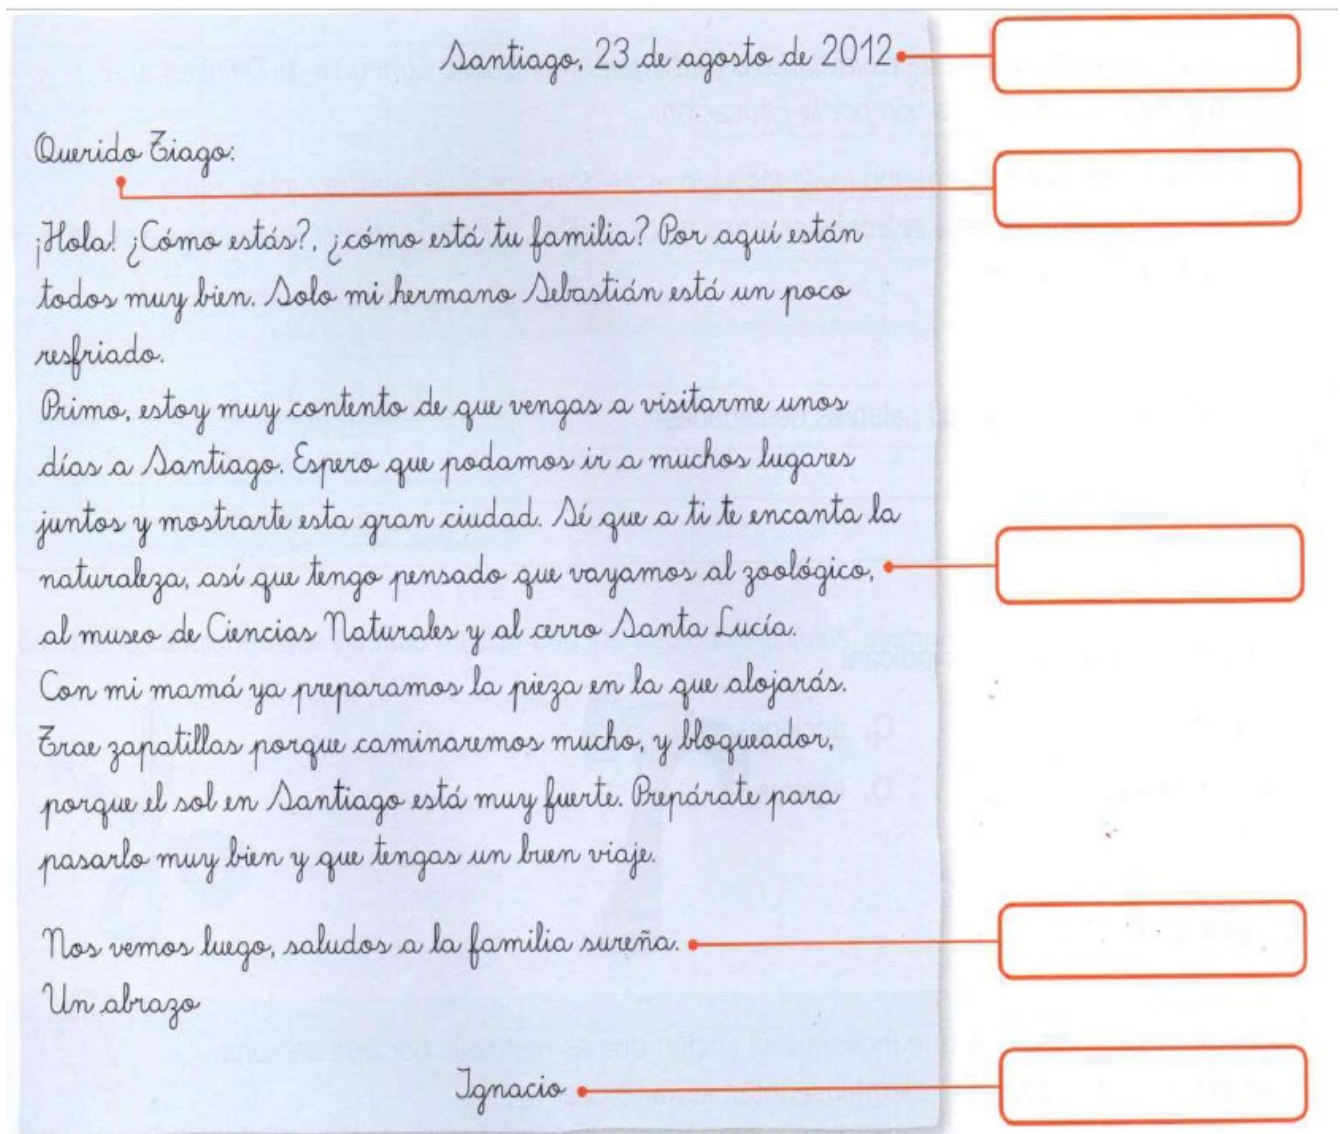 Santiago, 23 de agosto de 2012
Querido Tiago:
¡Hola! ¿Cómo estás?, ¿cómo está tu familia? Por aquí están
todos muy bien. Solo mi hermano Sebastián está un poco
resfriado.
Primo, estoy muy contento de que vengas a visitarme unos
días a Santiago. Espero que podamos ir a muchos lugares
juntos y mostrarte esta gran ciudad. Sé que a ti te encanta la
naturaleza, así que tengo pensado que vayamos al zoológico,
al museo de Ciencias Naturales y al cerro Santa Lucía.
Con mi mamá ya preparamos la pieza en la que alojarás.
Trae zapatillas porque caminaremos mucho, y bloqueador,
porque el sol en Santiago está muy fuerte. Prepárate para
pasarlo muy bien y que tengas un buen viaje.
Nos vemos luego, saludos a la familia sureña.
Un abrazo
Ignacio